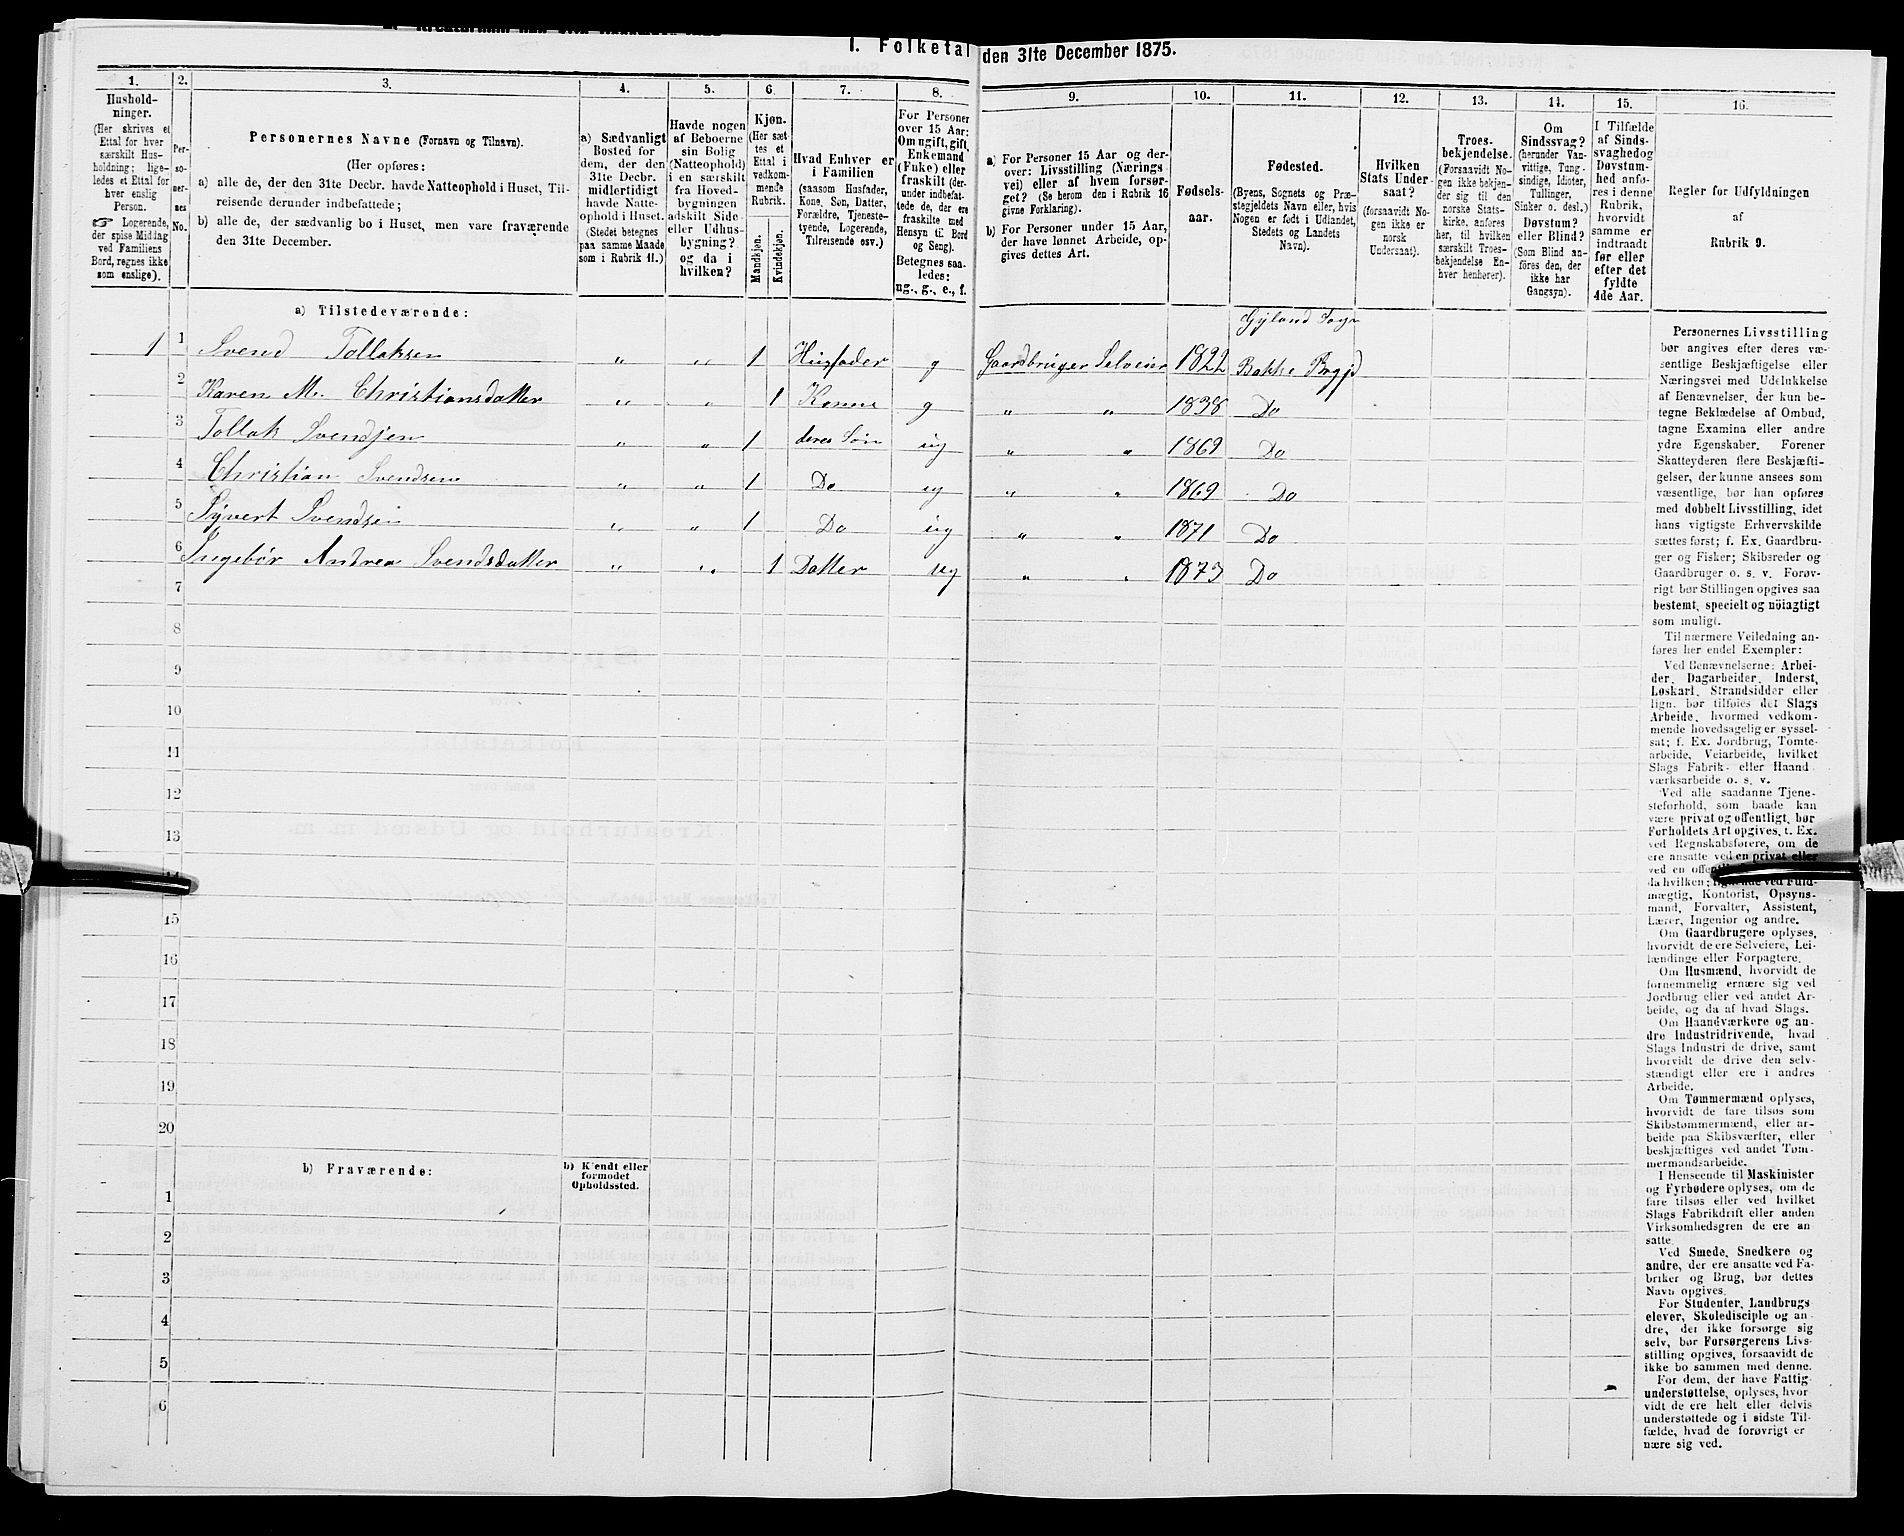 I. Folketal den 31te December 1875.
1. 2. 3. 4. 5. 6. 7. 8. 9. 10. 11. 12. 13. 14. 15. 16.
Hushold-
ninger.
(Her skrives et
Ettal for hver
særskilt Hus-
holdning; lige-
ledes et Ettal for
hver enslig
Person.
☞ Logerende,
der spise Middag
ved Familiens
Bord, regnes ikke
som enslige).
Per-
so-
ner-
nes
No.
Personernes Navne (Fornavn og Tilnavn).
(Her opføres:
a) alle de, der den 31te Decbr. havde Natteophold i Huset, Til-
reisende derunder indbefattede;
b) alle de, der sædvanlig bo i Huset, men vare fraværende
den 31te December.
a) Sædvanligt
Bosted for
dem, der den
31te Decbr.
midlertidigt
havde Natte-
ophold i Huset.
(Stedet betegnes
paa samme Maade
som i Rubrik 11.)
Havde nogen
af Beboerne
sin Bolig
(Natteophold)
i en særskilt
fra Hoved-
bygningen
adskilt Side-
eller Udhus-
bygning?
og da i
hvilken?
Kjøn.
(Her sæt-
tes et
Ettal i
vedkom-
mende
Rubrik.
Mandkjøn.
Kvindekjøn.
Hvad Enhver er
i Familien
(saasom Husfader,
Kone, Søn, Datter,
Forældre, Tjeneste-
tyende, Logerende,
Tilreisende osv.)
For Personer
over 15 Aar:
Om ugift, gift,
Enkemand
(Enke) eller
fraskilt (der-
under indbefat-
tede de, der ere
fraskilte med
Hensyn til Bord
og Seng).
Betegnes saa-
ledes:
ug., g., e., f.
a) For Personer 15 Aar og der-
over: Livsstilling (Nærings
vei) eller af hvem forsør-
get? (Se herom den i Rubrik 16
givne Forklaring).
b) For Personer under 15 Aar,
der have lønnet Arbeide, op-
gives dettes Art.
Fødsels-
aar.
Fødested.
(Byens, Sognets og Præ-
stegjeldets Navn eller, hvis
Nogen er født i Udlandet,
Stedets og Landets
Navn).
Hvilken
Stats Under-
saat?
(forsaavidt No-
gen ikke er
norsk
Undersaat).
Troes-
bekjendelse.
(Forsaavidt No-
gen ikke bekjen-
der sig til den
norske Stats-
kirke, anføres
her, til hvilken
særskilt Troes-
bekjendelse En-
hver henhører).
Om
Sindssvag?
(herunder Van-
vittige, Tung-
sindige, Idioter,
Tullinger,
Sinker o. desl.)
Døvstum?
eller Blind?
(Som Blind an-
føres den, der
ikke har
Gangsyn).
I Tilfælde
af Sinds-
svaghed og
Døvstum-
hed anfø-
res i denne
Rubrik,
hvorvidt
samme er
indtraadt
før eller
efter det
fyldte
4de Aar.
Regler for Udfyldningen
af
Rubrik 9.
a) Tilstedeværende:
Gyland Sogn
1 1 Svend Tollaksen „ „ 1 Husfader g Gaardbruger Selveier 1822 Bakke Prgjd
2 Karen M. Christiansdatter „ „ 1 Kone g „ „ 1838 Do
3 Tollak Svendsen „ „ 1 deres Søn ug „ „ Do
4 Christian Svendsen „ „ 1 Do ug „ „ 1869 Do
5 Syvert Svendsen „ „ 1 Do ug „ „ 1871 Do
6 Ingebør Andrea Svendsdatter „ „ 1 Datter ug „ „ 1873 Do
7
8
9
10
11
12
13
15
16
17
18
19
20
b) Fraværende:
b) Kjendt eller
formodet
Opholdssted.
1
2
3
4
5
6
Personernes Livsstilling
bør angives efter deres væ-
sentlige Beskjæftigelse eller
Næringsvei med Udelukkelse
af Benævnelser, der kun be-
tegne Beklædelse af Ombud,
tagne Examina eller andre
ydre Egenskaber. Forener
Skatteyderen flere Beskjæfti-
gelser, der kunne ansees som
væsentlige, bør han opføres
med dobbelt Livsstilling, idet
hans vigtigste Erhvervskilde
sættes først; f. Ex. Gaardbru-
ger og Fisker; Skibsreder og
Gaardbruger o. s. v. Forøv-
rigt bør Stillingen opgives saa
bestemt, specielt og nøiagtigt
som muligt.
Til nærmere Veiledning an-
føres her endel Exempler:
Ved Benævnelserne: Arbei-
der, Dagarbeider, Inderst,
Løskarl, Strandsidder eller
lign. bør tilføies det Slags
Arbeide, hvormed vedkom-
mende hovedsagelig er syssel-
sat; f. Ex. Jordbrug, Tomte-
arbeide, Veiarbeide, hvilket
Slags Fabrik- eller Haand
værksarbeide o. s. v.
Ved alle saadanne Tjene-
steforhold, som baade kan
være privat og offentligt, bør
Forholdets Art opgives, t. Ex.
ved Regnskabsførere, om de
ere ansatte ved en privat eller
ved en
da hvilken; lignende ved Fuld-
mægtig, Kontorist, Opsyns-
mand, Forvalter, Assistent,
Lærer, Ingeniør og andre.
Om Gaardbrugere oplyses,
hvorvidt de ere Selveiere, Lei-
lændinge eller Forpagtere.
Om Husmænd, hvorvidt de
fornemmelig ernære sig ved
Jordbrug eller ved andet Ar-
beide, og da af hvad Slags.
Om Haandværkere og an-
dre Industridrivende, hvad
Slags Industri de drive, samt
hvorvidt de drive den selv-
stændigt eller ere i andres
Arbeide.
Om Tømmermænd oplyses,
hvorvidt de fare tilsøs som
Skibstømmermænd, eller ar-
beide paa Skibsværfter, eller
beskjæftiges ved andet Tøm-
mermandsarbeide.
I Henseende til Maskinister
og Fyrbødere oplyses, om de
fare tilsøs eller ved hvilket
Slags Fabrikdrift eller anden
Virksomhedsgren de ere an-
satte.
Ved Smede, Snedkere og
andre, der ere ansatte ved Fa-
briker og Brug, bør dettes
Navn opgives.
For Studenter, Landbrugs
elever, Skoledisciple og an-
dre, der ikke forsørge sig
selv, bør Forsørgerens Livs-
stilling opgives, forsaavidt de
ikke bo sammen med denne.
For dem, der have Fattig
understøttelse, oplyses, hvor-
vidt de ere helt eller delvis
understøttede og i sidste Til-
fælde, hvad de forøvrigt er
nære sig ved.